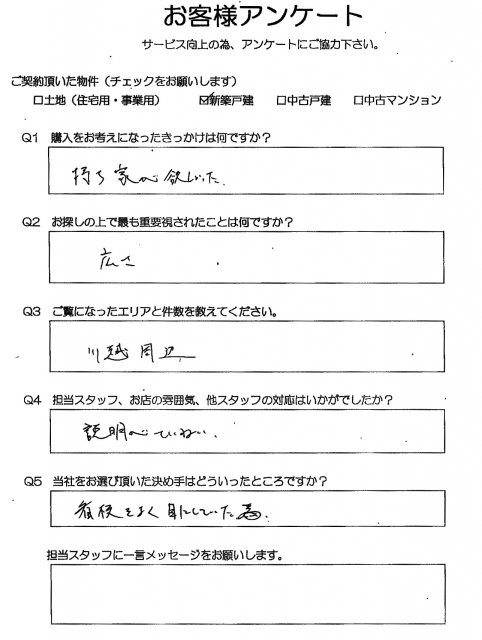 お客様アンケート
サービス向上の為、アンケートにご協力下さい。
ご契約頂いた物件（チェックをお願いします）
□土地（住宅用・事業用） ☑新築戸建 □中古戸建 □中古マンション
Q1 購入をお考えになったきっかけは何ですか？
持ち家が欲しかった.
Q2 お探しの上で最も重要視されたことは何ですか？
広さ
Q3 ご覧になったエリアと件数を教えてください。
川越周辺
Q4 担当スタッフ、お店の雰囲気、他スタッフの対応はいかがでしたか？
説明がていねい.
Q5 当社をお選び頂いた決め手はどういったところですか？
看板をよく目にしていた為.
担当スタッフに一言メッセージをお願いします。